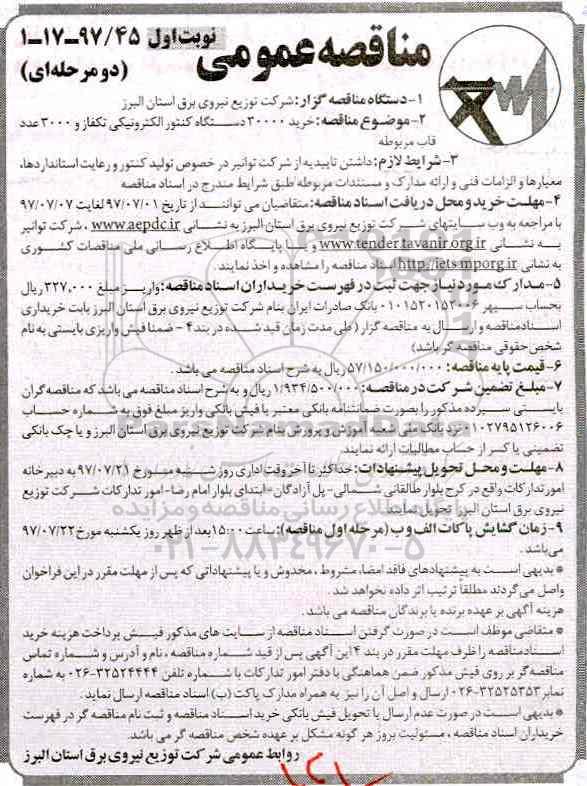 مناقصه عمومی
نوبت اول ۹۷/۴۵-۱۷-۱
(دو مرحله‌ای)
۱-دستگاه مناقصه گزار: شرکت توزیع نیروی برق استان البرز
۲-موضوع مناقصه: خرید ۳۰۰۰۰ دستگاه کنتور الکترونیکی تکفاز و ۳۰۰۰ عدد
قاب مربوطه
۳-شرایط لازم: داشتن تاییدیه از شرکت توانیر در خصوص تولید کنتور و رعایت استانداردها،
معیارها و الزامات فنی و ارائه مدارک و مستندات مربوطه/طبق شرایط مندرج در اسناد مناقصه
۴-مهلت خرید و محل دریافت اسناد مناقصه: متقاضیان می توانند از تاریخ ۹۷/۰۷/۰۱ لغایت ۹۷/۰۷/۰۷
با مراجعه به وب سایتهای شرکت توزیع نیروی برق استان البرز به نشانی www.aepdc.ir ، شرکت توانیر
به نشانی www.tender.tavanir.org.ir و یا پایگاه اطلاع رسانی ملی مناقصات کشوری
به نشانی http://iets.mporg.ir اسناد مناقصه را مشاهده و اخذ نمایند.
۵-مدارک مورد نیاز جهت ثبت در فهرست خریداران اسناد مناقصه: واریز مبلغ ۳۲۷,۰۰۰ ریال
بحساب سپهر ۰۱۰۱۵۲۰۱۵۳۰۰۶ بانک صادرات ایران بنام شرکت توزیع نیروی برق استان البرز بابت خریداری
اسناد مناقصه و ارسال به مناقصه گزار ( طی مدت زمان قید شده در بند ۴ - ضمنا فیش واریزی بایستی به نام
شخص حقوقی مناقصه گر باشد)
۶-قیمت پایه مناقصه: ۵۷/۱۵۰/۰۰۰/۰۰۰ ریال به شرح اسناد مناقصه می باشد .
۷-مبلغ تضمین شرکت در مناقصه: ۱/۹۳۴/۵۰۰/۰۰۰ ریال و به شرح اسناد مناقصه می باشد که مناقصه گران
بایستی سپرده مذکور را بصورت ضمانتنامه بانکی معتبر یا فیش بانکی واریز مبلغ فوق به شماره حساب
۰۱۰۲۷۹۵۱۲۶۰۰۶ نزد بانک ملی شعبه آموزش و پرورش بنام شرکت توزیع نیروی برق استان البرز و یا چک بانکی
تضمینی یا کسر از حساب مطالبات ارائه نمایند.
۸-مهلت و محل تحویل پیشنهادات: حداکثر تا آخر وقت اداری روز شنبه مورخ ۹۷/۰۷/۲۱ به دبیرخانه
امور تدارکات واقع در کرج بلوار طالقانی شمالی- پل آزادگان-ابتدای بلوار امام رضا-امور تدارکات شرکت توزیع
نیروی برق استان البرز تحویل نمایند.
۹-زمان گشایش پاکات الف و ب (مرحله اول مناقصه): ساعت ۱۵:۰۰ بعد از ظهر روز یکشنبه مورخ ۹۷/۰۷/۲۲
می باشد.
* بدیهی است به پیشنهادهای فاقد امضا، مشروط ، مخدوش و یا پیشنهاداتی که پس از مهلت مقرر در این فراخوان
واصل می گردند مطلقاً ترتیب اثر داده نخواهد شد .
هزینه آگهی بر عهده برنده یا برندگان مناقصه می باشد .
* متقاضی موظف است در صورت گرفتن اسناد مناقصه از سایت های مذکور فیش پرداخت هزینه خرید
اسناد مناقصه را ظرف مهلت مقرر در بند ۴ این آگهی پس از قید شماره مناقصه ، نام و آدرس و شماره تماس
مناقصه گر بر روی فیش مذکور ضمن هماهنگی با دفتر امور تدارکات با شماره تلفن ۳۲۵۲۴۴۴۴-۰۲۶ به شماره
نمابر ۳۲۵۲۵۳۵۳-۰۲۶ ارسال و اصل آن را نیز به همراه مدارک پاکت (ب) اسناد مناقصه ارسال نماید.
* بدیهی است در صورت عدم ارسال یا تحویل فیش بانکی خرید اسناد مناقصه و ثبت نام مناقصه گر در فهرست
خریداران اسناد مناقصه ، مسئولیت بروز هر گونه مشکل بر عهده شخص مناقصه گر می باشد.
روابط عمومی شرکت توزیع نیروی برق استان البرز
ParsNamadData
۰۲۱-۸۸۳۴۹۶۷۰-۵